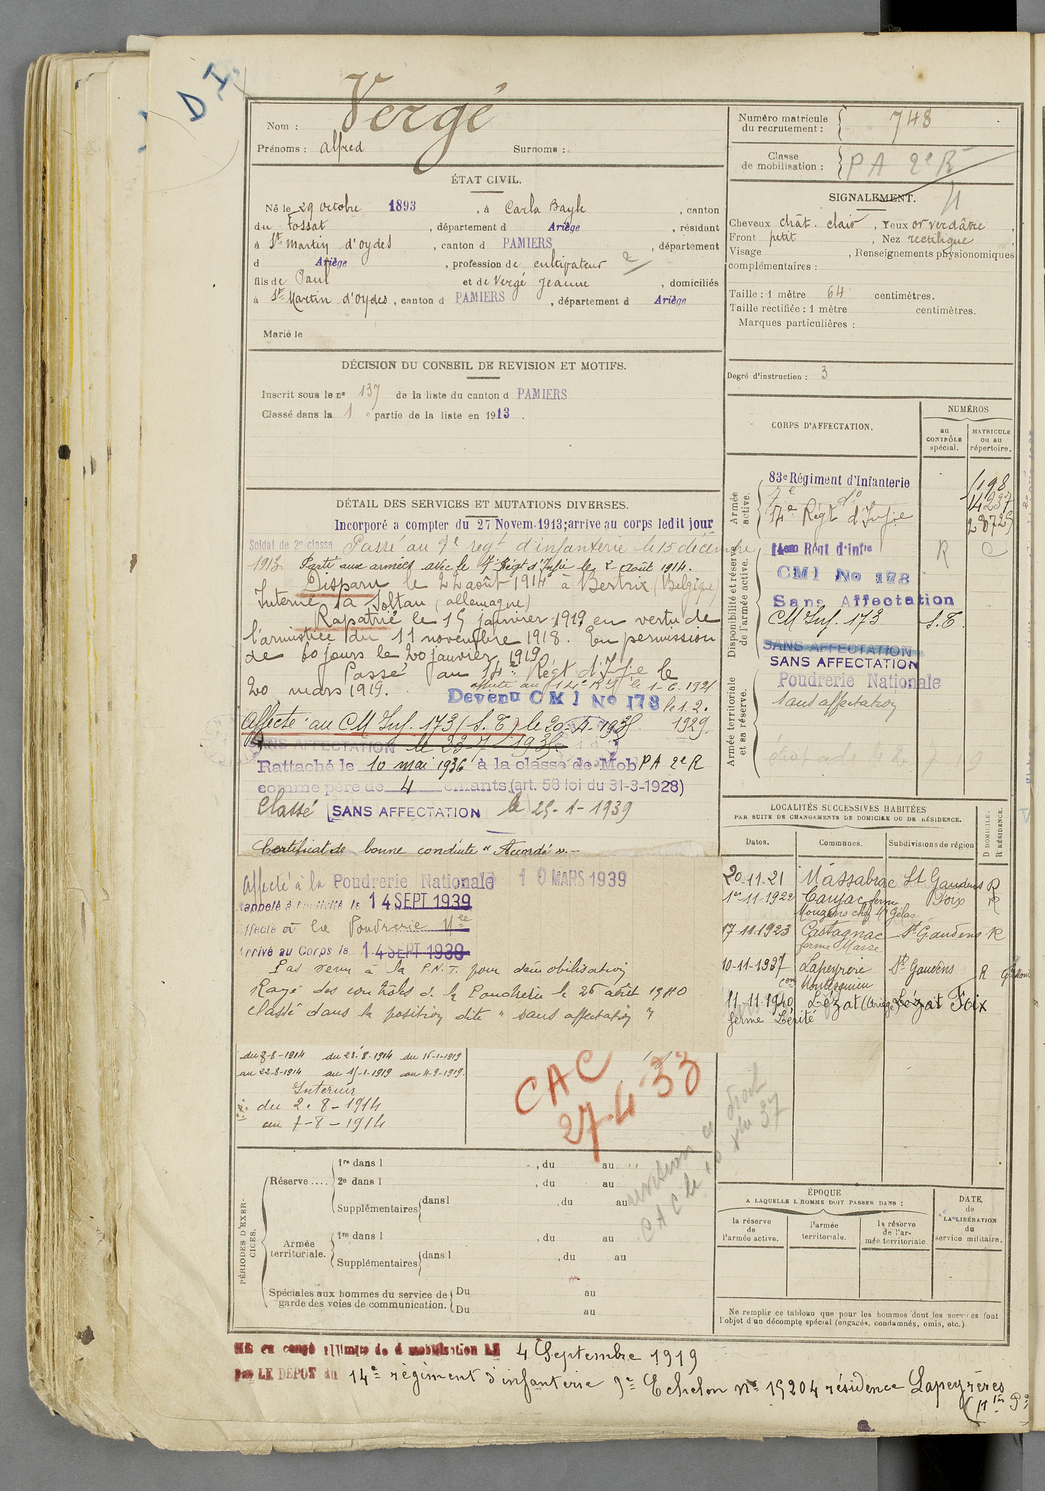 D I
Nom : Vergé
Prénoms : Alfred Surnoms :
Numéro matricule du recrutement : 748
Classe de mobilisation : PA 2e R
ÉTAT CIVIL.
Né le 29 octobre 1893, à Carla Bayle, canton
du Fossat, département d Ariège, résidant
à St Martin d'Oydes, canton d PAMIERS, département
d Ariège, profession de cultivateur
fils de Paul et de Vergé Jeanne, domiciliés
à St Martin d'Oydes, canton d PAMIERS, département d Ariège
Marié le
SIGNALEMENT.
Cheveux chât. clair, Yeux or verdâtre,
Front petit, Nez rectiligne,
Visage , Renseignements physionomiques
complémentaires :
Taille : 1 mètre 64 centimètres.
Taille rectifiée : 1 mètre centimètres.
Marques particulières :
Degré d'instruction : 3
DÉCISION DU CONSEIL DE REVISION ET MOTIFS.
Inscrit sous le no 137 de la liste du canton d PAMIERS
Classé dans la 1 e partie de la liste en 1913.
DÉTAIL DES SERVICES ET MUTATIONS DIVERSES.
Incorporé a compter du 27 Novem. 1913; arrive au corps ledit jour
Soldat de 2e classe Passé au 9e regt d'infanterie le 15 décembre
1913. Parti aux armées avec le Regt d'Infie le 2 Août 1914.
Disparu le 22 août 1914 à Bertrix (Belgique)
Interné à Soltau (allemagne)
Rapatrié le 15 janvier 1919 en vertu de
l'armistice du 11 novembre 1918. En permission
de 60 jours le 20 janvier 1919
Passé au 14e Régt d'Infie le
20 mars 1919.
affecté au 14e RI le 1-6-1921
Devenu CMI No 173 le 1.2.1929.
Affecté au CM Inf. 173 (S.E.) le 20-4-
SANS AFFECTATION le
Rattaché le 10 mai 1936 à la classe de Mob PA 2e R
comme père de 4 enfants (art. 58 loi du 31-3-1928)
Classé SANS AFFECTATION le 25-1-1939
Certificat de bonne conduite "Accordé".-
Affecté à la Poudrerie Nationale 10 MARS 1939
rappelé à l'activité le 14 SEPT 1939
affecté à la Poudrerie Nle
arrivé au Corps le 14 SEPT 1939
Pas venu à la P.N.T. pour démobilisation
Rayé des contrôles de la Poudrerie le 26 août 1940
Classé dans la position dite "sans affectation"
du 8-8-1914 du 23-8-1914 du 16-1-1919
au 22-8-1914 au 15-1-1919 au 4-9-1919.
Interieur
du 2-8-1914
au 7-8-1914
CAC
27-4-33
CORPS D'AFFECTATION.
NUMÉROS
au CONTRÔLE spécial.
MATRICULE ou au répertoire.
Armée active.
83e Régiment d'Infanterie
9e do
14e Régt d'Infie
Disponibilité et réserve de l'armée active.
14em Régt d'infie R C
CMI No 173
Sans Affectation
CM Inf. 173 S.E.
SANS AFFECTATION
SANS AFFECTATION
Armée territoriale et sa réserve.
Poudrerie Nationale
Sans affectation
LOCALITÉS SUCCESSIVES HABITÉES
PAR SUITE DE CHANGEMENTS DE DOMICILE OU DE RÉSIDENCE.
D DOMICILE. R RÉSIDENCE.
Dates. Communes. Subdivisions de région
20-11-21 Massabrac St Gaudens R
1er-11-1922 Canjac ferme Foix R
17-11-1923 Castagnac St Gaudens R
ferme Masse
10-11-1937 Lapeyrère St Gaudens R
11-11-1940 Lézat (Ariège) Lézat Foix
ferme
PÉRIODES D'EXERCICES.
Réserve....
1re dans l , du au
2e dans l , du au
Supplémentaires dans l , du au
Armée territoriale.
1re dans l , du au
Supplémentaires dans l , du au
Spéciales aux hommes du service de garde des voies de communication.
Du au
Du au
ÉPOQUE
A LAQUELLE L'HOMME DOIT PASSER DANS :
la réserve de l'armée active.
l'armée territoriale.
la réserve de l'armée territoriale.
DATE de LA LIBÉRATION du service militaire.
Ne remplir ce tableau que pour les hommes dont les services font
l'objet d'un décompte spécial (engagés, condamnés, omis, etc.)
Mis en congé illimité de démobilisation LE 4 Septembre 1919
Par LE DEPOT du 14e régiment d'infanterie 9e Echelon No 15204 résidence Lapeyrères